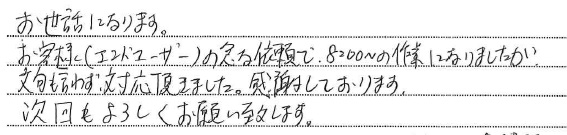 お世話になります。
お客様(エンドユーザー)の急な依頼で、8:00〜の作業になりましたが
文句も言わず対応頂きました。感謝しております。
次回もよろしくお願い致します。